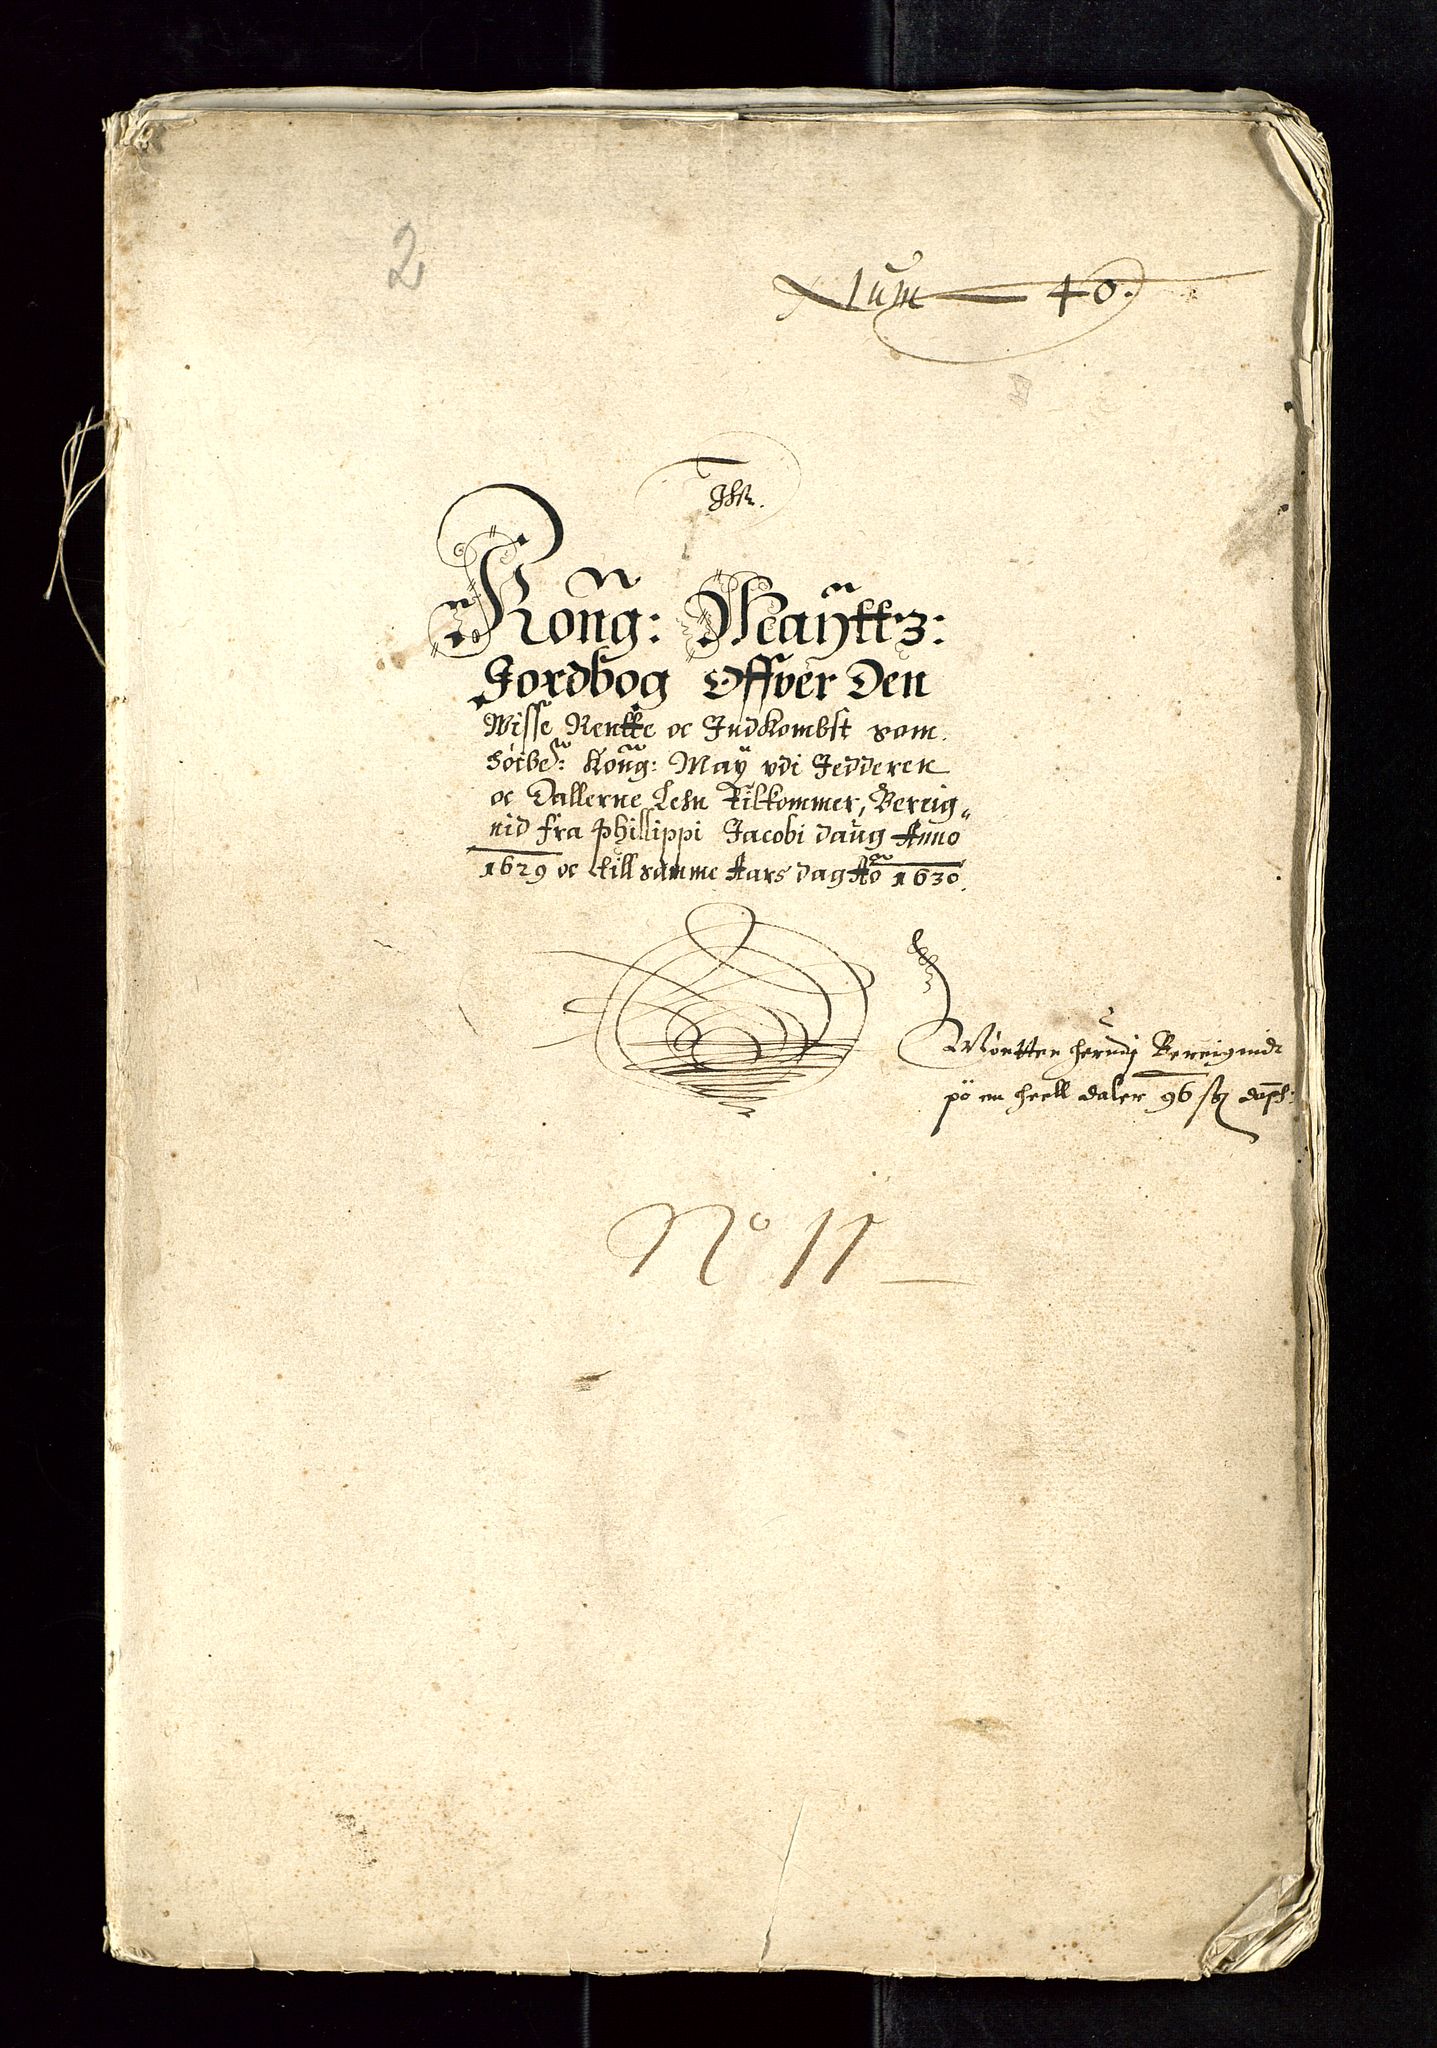 2
Num 40.
Ihs.
Kong: Mayttz:
Jordbog Offver Den
Wisse Rentte oc Indkombst som
høibe: Kong: May udi Jedderen
oc Dallerne Lehn Tilkommer, Bereig„
nid fra Philippi Jacobi daug Anno
1629 oc till samme Aars dag Ao 1630.
Møntten herudj Bereignidt
på en heell daler 96 ß
No 11